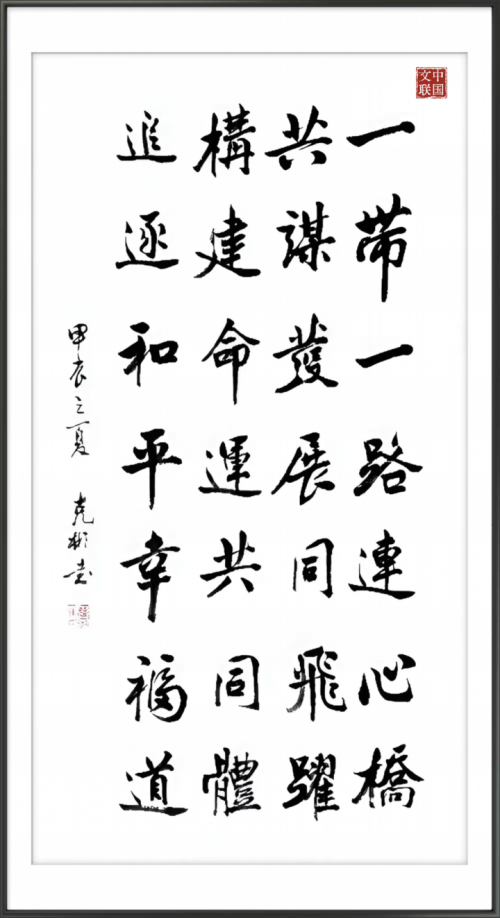 一帶一路連心橋
共謀發展同飛躍
構建命運共同體
追逐和平幸福道
甲辰之夏 克彬书
中国文联